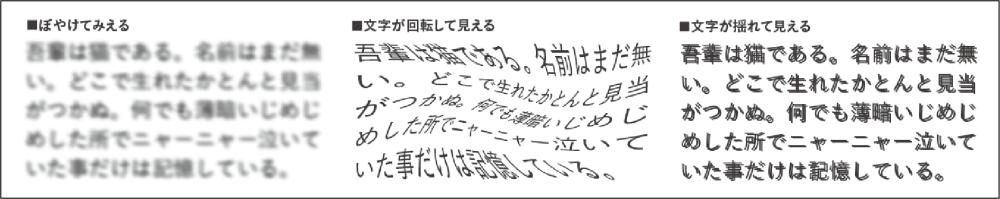 ■ぼやけてみえる
吾輩は猫である。名前はまだ無
い。どこで生れたかとんと見当
がつかぬ。何でも薄暗いじめじ
めした所でニャーニャー泣いて
いた事だけは記憶している。
■文字が回転して見える
吾輩は猫である。名前はまだ無
い。どこで生れたかとんと見当
がつかぬ。何でも薄暗いじめじ
めした所でニャーニャー泣いて
いた事だけは記憶している。
■文字が揺れて見える
吾輩は猫である。名前はまだ無
い。どこで生れたかとんと見当
がつかぬ。何でも薄暗いじめじ
めした所でニャーニャー泣いて
いた事だけは記憶している。